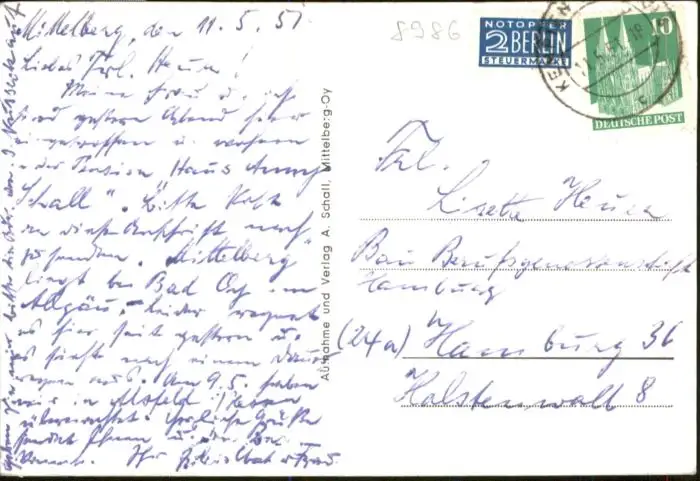 Mittelberg, den 11.5.51
Liebes Frl. Heuer!
Meine Frau u. ich
sind gestern Abend hier
eingetroffen u. wohnen
in der Pension "Haus Anny
Schall". Bitte Post
an diese Anschrift nach-
zusenden. Mittelberg
liegt bei Bad Oy im
Allgäu. Leider regnet
es hier seit gestern u.
es sieht nach einem Dauer-
regen aus. Am 9.5. haben
wir in Alsfeld
übernachtet. Herzliche Grüße
sendet Ihnen u.
Ihr u. Frau.
8986
NOTOPFER
2 BERLIN
STEUERMARKE
KEMPTEN
10
DEUTSCHE POST
Aufnahme und Verlag A. Schall, Mittelberg-Oy
Frl.
Lisette Heuer
Bau Berufsgenossenschaft
Hamburg
(24a) Hamburg 36
Holstenwall 8